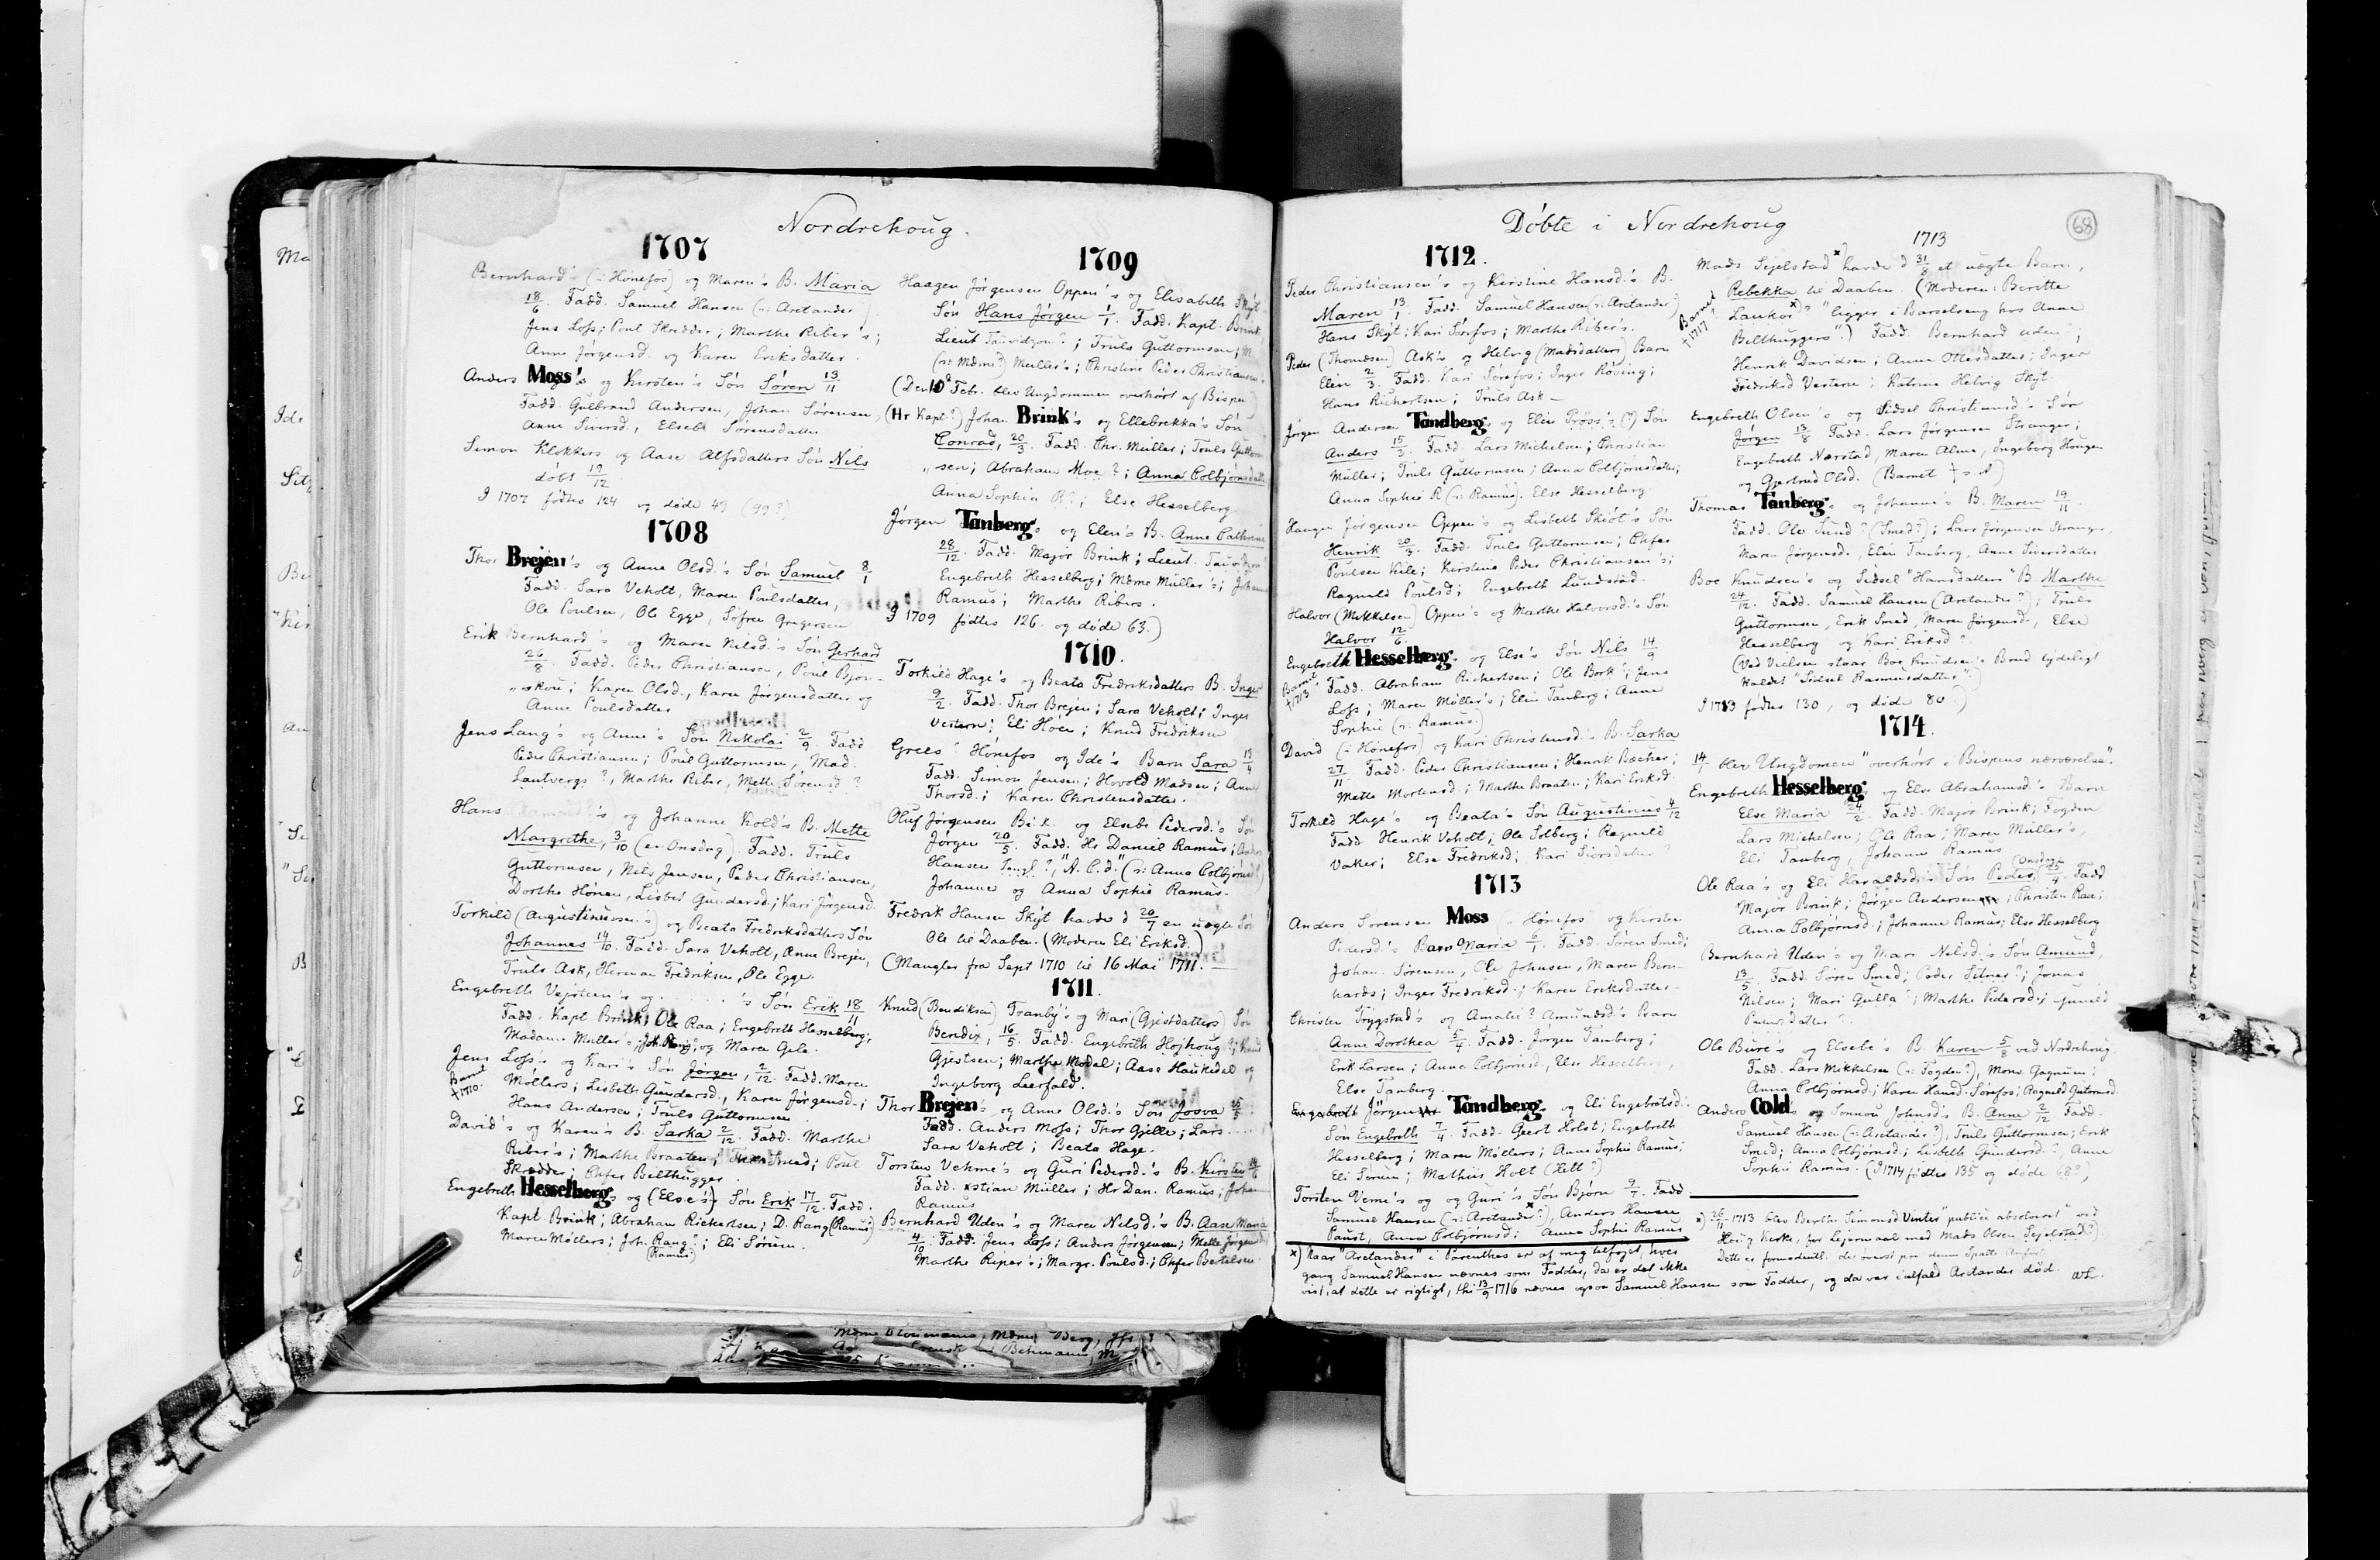 Nordrehoug.
1707
Bernhard's (i Hønefos) og Maren's B. Maria
18/6. Fadd. Samuel Hansen (ɔ: Arctander)
Jens Loss; Poul Skredder; Marthe Riber's;
Anne Jørgensd. og Karen Eriksdatter.
Anders Moss's og Kirsten's Søn Søren 13/11
Fadd. Gulbrand Andersen, Johan Sørensen,
Anne Siversd., Elsebe Sørensdatter
Simon Klokkers og Aase Alfsdatters Søn Nils
døbt 19/12
I 1707 fødtes 124 og døde 49 (99?)
1708
Thor Brejen's og Anne Olsd.'s Søn Samuel 8/1
Fadd. Sara Veholt, Maren Poulsdatter,
Ole Poulsen, Ole Egge, Sofren Gregersen
Erik Bernhard's og Maren Nilsd.'s Søn Gerhard
26/8. Fadd. Peder Christiansen, Poul Bjørn-
skou; Karen Olsd., Karen Jørgensdatter og
Anne Poulsdatter
Jens Lang's og Anne's Søn Nikolai 2/9. Fadd
Peder Christiansen; Poul Guttormsen, Mad.
Lautvergs?, Marthe Riber, Mette Sørensd.?
Hans 's og Johanne Kold's B. Mette
Margrethe, 3/10 (en Onsdag). Fadd. Truls
Guttormsen, Nils Jensen, Peder Christiansen,
Dorthe Hønen, Lisbet Gundersd.; Kari Jørgensd.
Torkild (Augustinussen's) og Beata Fredriksdatters Søn
Johannes 14/10. Fadd. Sara Veholt, Anne Brejen,
Truls Ask, Herman Fredriksen, Ole Egge.
Engebreth Vejsteen's og . . . . . . 's Søn Erik 18/11
Fadd. Kapt. Brink; Ole Raa; Engebreth Hesselberg;
Madame Müller's; og Maren Gele.
Jens Loss's og Kari's Søn Jørgen, 2/12. Fadd. Maren
Barnet † 1710.
Møllers; Lisbeth Gundersd., Karen Jørgensd.;
Hans Andersen; Truls Guttormsen.
David's og Karen's B. Sarka 2/12. Fadd. Marthe
Riber's; Marthe Braaten; Smed; Poul
Skrædder; Chfer Bielthugger.
Engebreth Hesselbergs og (Else's) Søn Erik 17/12. Fadd.
Kapt. Brink; Abraham Rickertsen; D. Rang (Ramus)
Maren Møllers; Joh. Rang?; Eli Sørum.
(Ramus)
1709
Haagen Jørgensen Oppen's og Elisabeth Skyt
Søn Hans Jørgen 1/1. Fadd. Kapt. Brink,
Lieut Tauvidzon?; Truls Guttormsen; M
(ɔ: Mdme?) Muller's; Christine Peder Christiansen's
(Den 10d Febr. blev Ungdommen overhørt af Bispen)
(Hr Kapt?) Johan Brink's og Ellebrekka's Søn
Conrad, 20/3. Fadd. Chr. Müller; Truls Guttorm
sen; Abraham Moe?; Anna Colbjørnsdatter
Anna Sophia R?; Else Hesselberg
Jørgen Tanbergs og Elen's B. Anne Cathrine
28/12. Fadd. Major Brink; Lieut. Tauvidzon
Engebreth Hesselberg; Mdme Müller's; Johanne
Ramus; Marthe Ribers.
I 1709 fødtes 126 og døde 63.)
1710.
Torkild Hage's og Beata Fredriksdatters B. Inger
9/2. Fadd. Thor Brejen; Sara Veholt; Inger
Vestern; Eli Høen; Knud Fredriksen
Grees? Hønefos og Ide's Barn Sara 13/4
Fadd. Simon Jensen; Hovold Madsen; Anne
Thorsd.; Karen Christensdatter.
Oluf Jørgensen og Elsebe Pedersd.'s Søn
Jørgen 20/5. Fadd. Hr Daniel Ramus; Anders
Hansen ?, "A. C. d." (ɔ: Anna Colbjørnsd.)
Johanne og Anna Sophie Ramus.
Fredrik Hansen Skyt havde d 20/7 en uægte Søn
Ole til Daaben. (Moderen Eli Eriksd.)
(Mangler fra Sept 1710 til 16 Mai 1711.
1711.
Knud (Bendiksen) Tranby's og Mari (Gjestdatters) Søn
Bendix, 16/5. Fadd. Engebreth Hojhoug; Knud
Gjestsen; Marthe Modal; Aase Haukedal og
Ingeborg Leerfald.
Thor Brejens og Anne Olsd.'s Søn Josva 25/5
Fadd. Anders Moss; Thor Gjelle; Lars
Sara Veholt; Beata Hage.
Torsten Vehme's og Guri Pedersd.'s B. Kirsten
Fadd. xstian Müller; Hr Dan. Ramus; Johan
Ramus
Bernhard Uden's og Maren Nilsd.'s B. Aase Maria
4/10. Fadd. Jens Loss; Anders Jørgensen; Mette Jørgensd
Marthe Riper's; Margr. Poulsd.; Chfer Bertelsen.
Døbte i Nordrehoug
68
1712.
Peder Christiansen's og Kirstine Hansd.'s B.
Maren 13/1. Fadd. Samuel Hansen (ɔ: Arctander)
Hans Skyt; Kari Sørefos; Marthe Riber's.
Peder (Thomesen) Ask's og Helvig (Madsdatters) Barn
Elen 2/3. Fadd. Kari Sørefos; Inger Rosing;
Hans Richertsen; Truls Ask—
Jørgen Andersen Tandbergs og Elin Prøss's (?) Søn
Anders 15/3. Fadd. Lars Michelsen; Christian
Müller; Truls Guttormsen; Anna Colbjørnsdatter;
Anna Sophie R (ɔ: Ramus). Else Hesselberg.
Haagen Jørgensen Oppen's og Lisbeth Skiøt's Søn
Henrik 20/3. Fadd. Truls Guttormsen; Chfer
Poulsen Kile; Kirstine Peder Christiansen's;
Ragnild Poulsd; Engebreth Lundstad.
Halvor (Mikkelsen) Oppen's og Marthe Halvorsd.'s Søn
Halvor 12/6.
Engebreth Hesselbergs og Else's Søn Nils 14/9
Barnet † 1713.
Fadd. Abraham Richertsen; Ole Bork; Jens
Loss; Maren Müller's; Elin Tanberg; Anne
Sophie (ɔ: Ramus.)
David (i Hønefos) og Kari Christensd.'s B. Sarka
27/11. Fadd. Peder Christiansen; Henrik Bæcher;
Mette Mortensd.; Marthe Braaten; Kari Eriksd.
Torkild Hage's og Beata's Søn Augustinus 4/12
Fadd Henrik Veholt; Ole Solberg; Ragnild
Vaker; Else Fredriksd; Kari Siversdatter?
1713
Anders Sørensen Moss Hønefos" og Kirsten
Pedersd.'s Barn Maria 6/1. Fadd. Søren Smed;
Johan Sørensen, Ole Johnsen, Maren Bern-
hards; Inger Fredriksd.; Karen Eriksdatter.
Christen Trygstad's og Amalie? Amundsd's Barn
Anne Dorothea 5/4. Fadd. Jørgen Tanberg;
Erik Larsen; Anna Colbjørnsd., Else Hesselberg,
Else Tanberg.
Jørgen Tandbergs og Eli Engebretsd.'
Søn Engebreth 7/4. Fadd. Geert Holst; Engebreth
Hesselberg; Maren Müllers; Anne Sophie Ramus;
Eli Sørum; Mathias Holt (Hett?)
Torsten Veme's og og Guri's Søn Bjørn 9/7. Fadd
Samuel Hansen (ɔ: Arctander x?), Anders Hansen
Paust; Anna Colbjørnsd; Anna Sophie Ramus
x) Naar "Arctander" i Parenthes er af mig tilføjet, hver
gang Samuel Hansen nævnes som Fadder, da er det ikke
vist, at dette er rigtigt, thi 13/9 1716 nævnes ogsaa Samuel Hansen som Fadder, og da var i alfald Arctander død. WL.
1713
Mads Sejelstad x) havde d 31/8 et uægte Barn,
Rebekka til Daaben. (Moderen: Beritte
Barnet † 1717
Laukor x)? "ligger i Barselseng hos Anne
Bilthuggers".) Fadd. Bernhard uden;
Henrik Davidsen; Anna Ottesdatter; Inger
Fredriksd Vestern; Katrine Helvig Skyt.
Engebreth Olsen's og Sidsel Christiansd's Søn
Jørgen 13/8 Fadd. Lars Jørgensen Stranger;
Engebreth Nærstad, Maren Alme, Ingeborg Hougen
og Gjertrud Olsd. (Barnet † s. A)
Thomas Tanbergs og Johanne's B. Maren 19/11.
Fadd. Ole Sund? (Smed?); Lars Jørgensen Stranger,
Maren Jørgensd., Elin Tanberg, Anne Siversdatter
Boe Knudsen's og Sidsel "Hansdatters" B. Marthe
24/12. Fadd. Samuel Hansen (Arctander?); Truls
Guttormsen, Erik Smed, Maren Jørgensd., Else
Hesselberg og Kari Eriksd?
(Ved Vielsen staar Boe Knudsen's Brud tydeligt
kaldet "Sidsel Rasmusdatter".)
I 1713 fødtes 130, og døde 80.)
1714.
14/1 blev Ungdomen "overhørt i Bispens nærværelse".
Engebreth Hesselbergs og Else Abrahamsd.'s Barn
Else Maria 24/2. Fadd. Major Brink; Fogden
Lars Michelsen; Ole Raa; Maren Müller's,
Eli Tanberg, Johanne Ramus
Ole Raa's og Eli Haraldsd.'s Søn Peder, (Onsdag) 25/4. Fadd
Major Brink; Jørgen Andersen; Christen Raa;
Anna Colbjørnsd.; Johanne Ramus; Else Hesselberg
Bernhard Uden's og Mari Nilsd.'s Søn Amund,
13/5. Fadd. Søren Smed; Peder Setner?; Jonas
Nilsen; Mari Gulla; Marthe Pedersd.; Gunild
datter?.
Ole Bure's og Elsebe's B. Karen 5/8 ved Nordrehoug.
Fadd. Lars Mikkelsen (ɔ: Fogden?), Monr. Gagnum;
Anna Colbjørnsd.; Karen Hansd. Sørefos; Ragnild Gutormsd.
Anders Colds og Sonnou Johnsd's B. Anne 2/12. Fadd.
Samuel Hansen (ɔ: Arctander?), Truls Guttormsen; Erik
Smed; Anna Colbjørnsd.; Lisbeth Gundersd.?, Anne
Sophie Ramus. (I 1714 fødtes 135 og døde 68?)
x) 26/11 1713 blev Berthe Simonsd Vinter "publicè absolveret" ved
Houg Kirke, for Lejermaal med Mads Olsen Sejelstad?).
Dette er formodentl. de øverst paa denne Spalte Anførte.